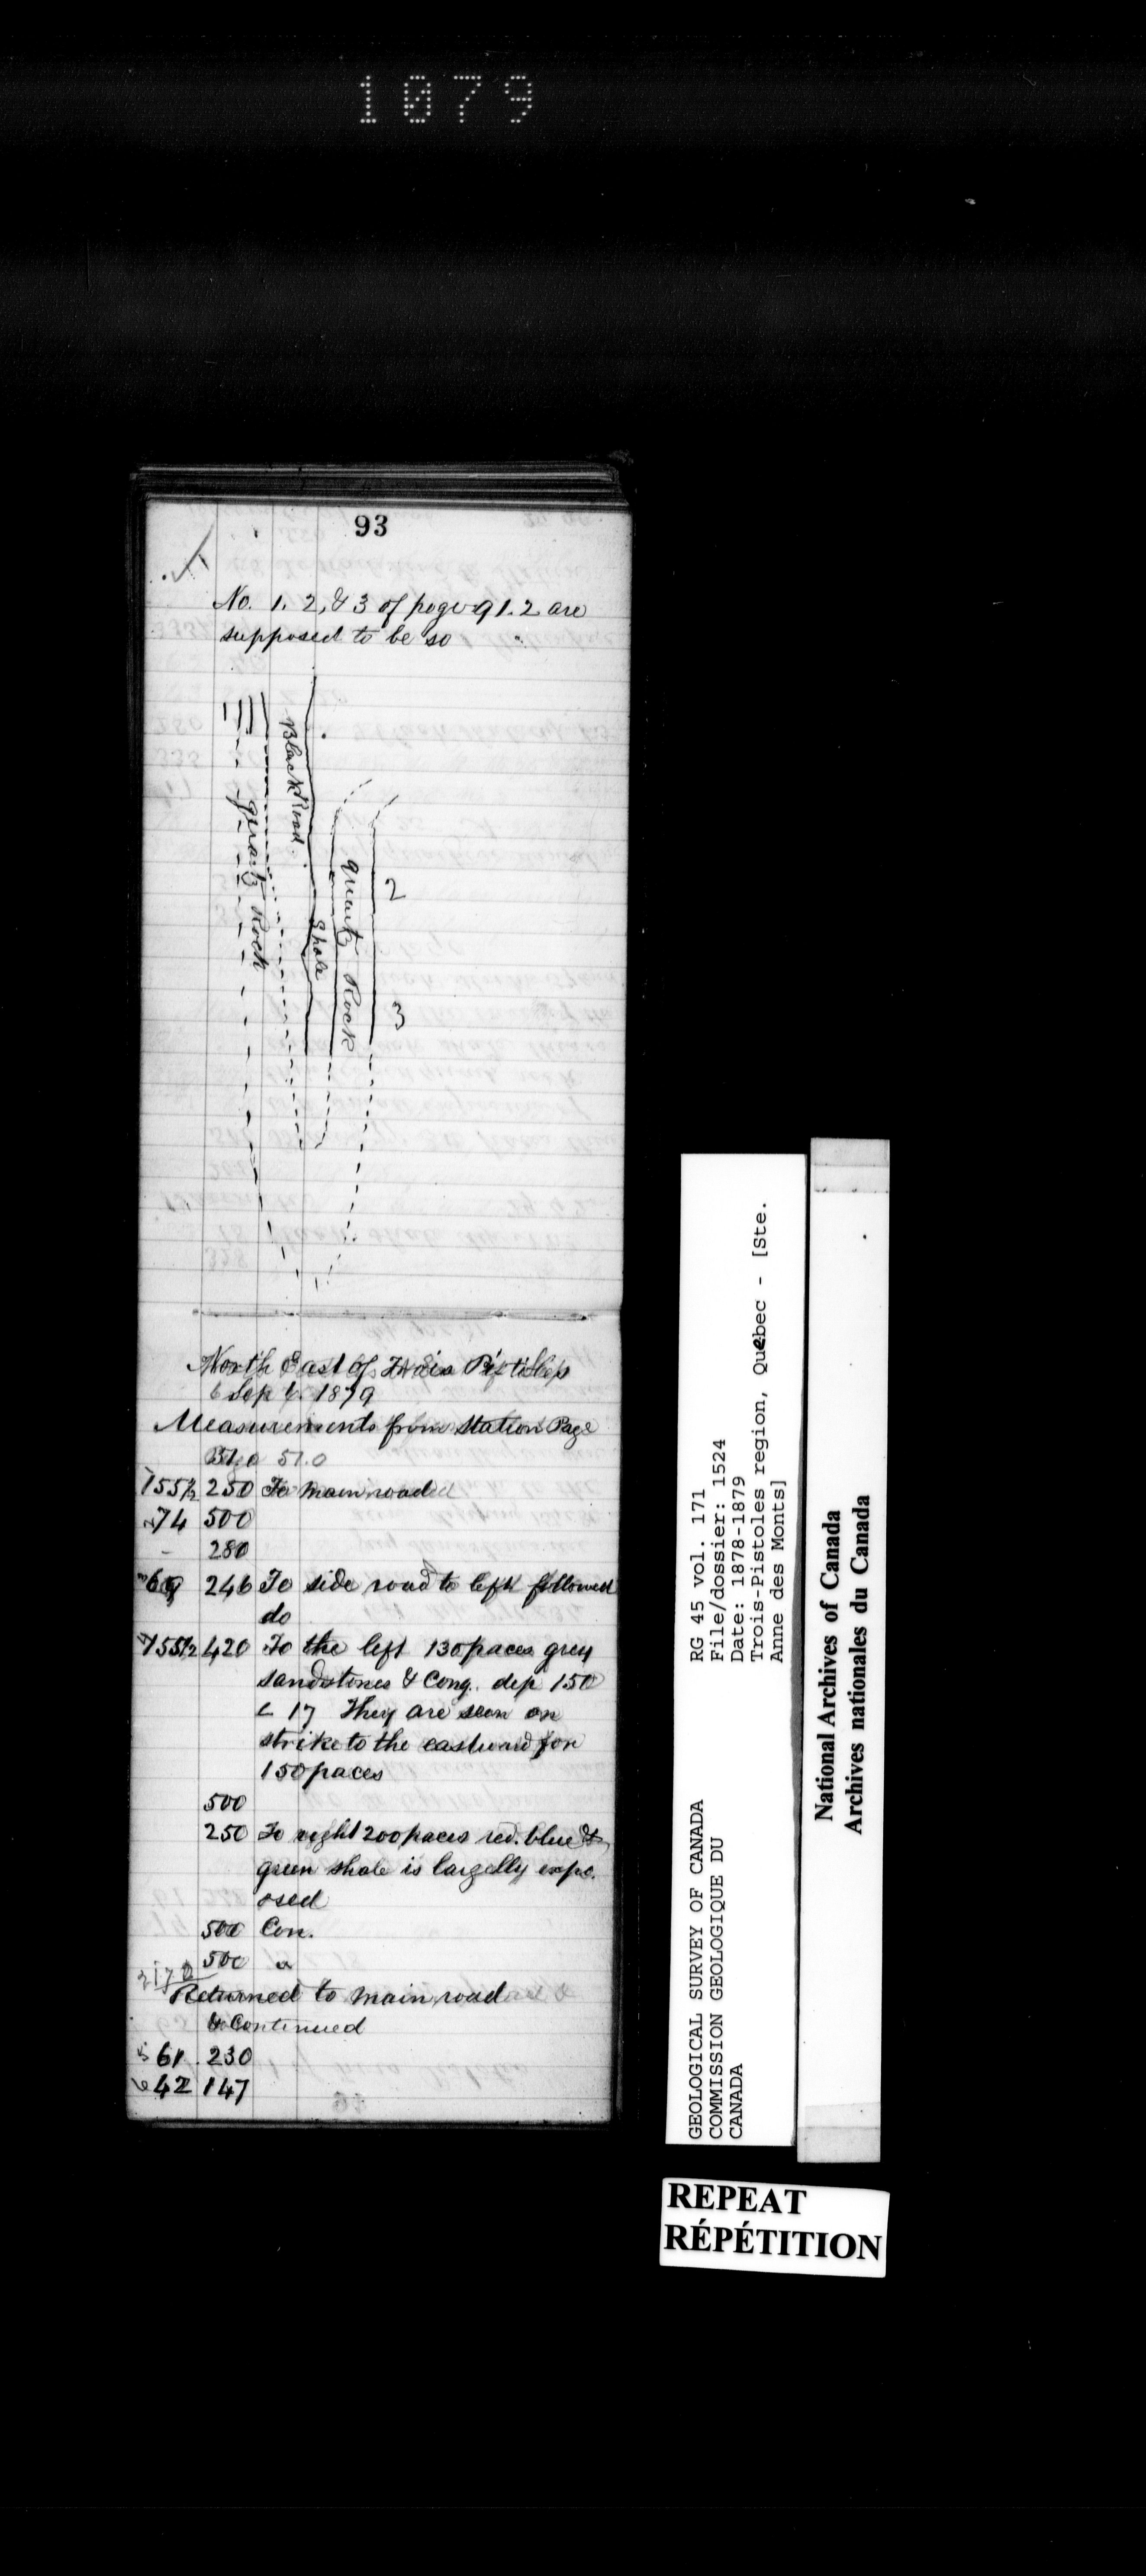 1079
93
No. 1. 2, & 3 of page 91.2 are
supposed to be so
Black Road.
quartz Rock
Shale
quartz Rock
2
3
North East of Trois Pistoles
6 Sept. 1879
Measurements from Station Page
51.0
155½ 250 To main road
74 500
280
69 246 To side road to left followed
do
155½ 420 To the left 130 paces grey
sandstones & Cong. dip 150
∠ 17 They are seen on
strike to the eastward for
150 paces
500
250 To right 200 paces red. blue &
green shale is largelly expo.
osed
500 Con.
500 "
2170
Returned to main road
& Continued
5 61 230
6 42 147
GEOLOGICAL SURVEY OF CANADA
COMMISSION GEOLOGIQUE DU
CANADA
RG 45 vol. 171
File/dossier: 1524
Date: 1878-1879
Trois-Pistoles region, Quebec - [Ste.
Anne des Monts]
National Archives of Canada
Archives nationales du Canada
REPEAT
RÉPÉTITION